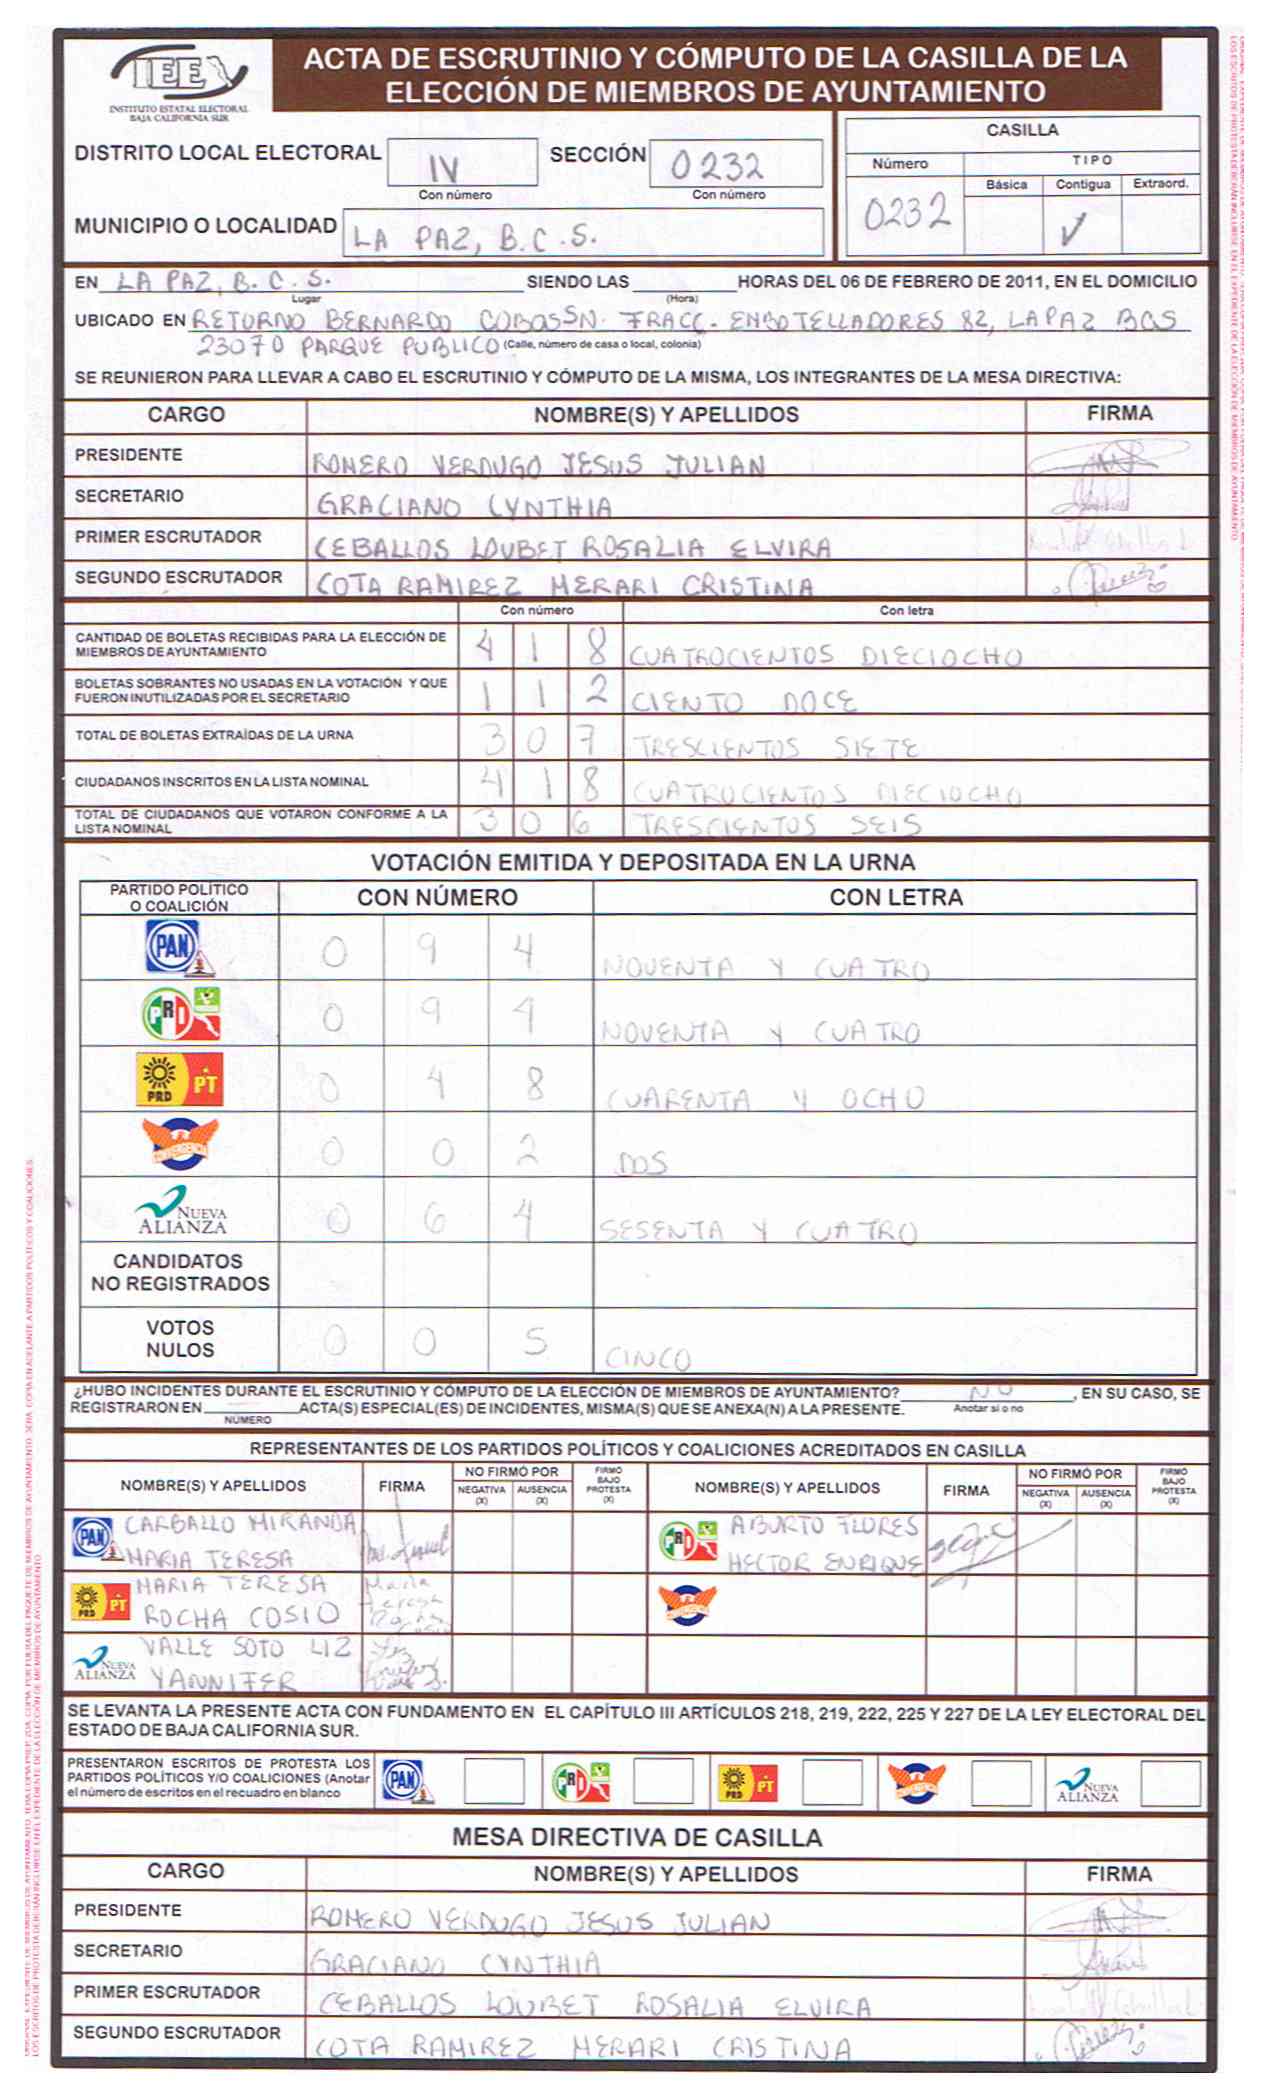 IEE
INSTITUTO ESTATAL ELECTORAL
BAJA CALIFORNIA SUR
ACTA DE ESCRUTINIO Y CÓMPUTO DE LA CASILLA DE LA
ELECCIÓN DE MIEMBROS DE AYUNTAMIENTO
DISTRITO LOCAL ELECTORAL IV SECCIÓN 0232
Con número Con número
MUNICIPIO O LOCALIDAD LA PAZ, B.C.S.
CASILLA
Número TIPO
Básica Contigua Extraord.
0232 ✓
EN LA PAZ, B.C.S. SIENDO LAS HORAS DEL 06 DE FEBRERO DE 2011, EN EL DOMICILIO
Lugar (Hora)
UBICADO EN RETORNO BERNARDO COBOS SN. FRACC. ENBOTELLADORES 82, LA PAZ BCS
23070 PARQUE PUBLICO (Calle, número de casa o local, colonia)
SE REUNIERON PARA LLEVAR A CABO EL ESCRUTINIO Y CÓMPUTO DE LA MISMA, LOS INTEGRANTES DE LA MESA DIRECTIVA:
CARGO NOMBRE(S) Y APELLIDOS FIRMA
PRESIDENTE ROMERO VERDUGO JESUS JULIAN
SECRETARIO GRACIANO CYNTHIA
PRIMER ESCRUTADOR CEBALLOS LOUBET ROSALIA ELVIRA
SEGUNDO ESCRUTADOR COTA RAMIREZ MERARI CRISTINA
Con número Con letra
CANTIDAD DE BOLETAS RECIBIDAS PARA LA ELECCIÓN DE
MIEMBROS DE AYUNTAMIENTO 4 1 8 CUATROCIENTOS DIECIOCHO
BOLETAS SOBRANTES NO USADAS EN LA VOTACIÓN Y QUE
FUERON INUTILIZADAS POR EL SECRETARIO 1 1 2 CIENTO DOCE
TOTAL DE BOLETAS EXTRAÍDAS DE LA URNA 3 0 7 TRESCIENTOS SIETE
CIUDADANOS INSCRITOS EN LA LISTA NOMINAL 4 1 8 CUATROCIENTOS DIECIOCHO
TOTAL DE CIUDADANOS QUE VOTARON CONFORME A LA
LISTA NOMINAL 3 0 6 TRESCIENTOS SEIS
VOTACIÓN EMITIDA Y DEPOSITADA EN LA URNA
PARTIDO POLÍTICO
O COALICIÓN CON NÚMERO CON LETRA
PAN 0 9 4 NOVENTA Y CUATRO
PRI 0 9 4 NOVENTA Y CUATRO
PRD PT 0 4 8 CUARENTA Y OCHO
CONVERGENCIA 0 0 2 DOS
NUEVA
ALIANZA 0 6 4 SESENTA Y CUATRO
CANDIDATOS
NO REGISTRADOS
VOTOS
NULOS 0 0 5 CINCO
¿HUBO INCIDENTES DURANTE EL ESCRUTINIO Y CÓMPUTO DE LA ELECCIÓN DE MIEMBROS DE AYUNTAMIENTO? NO , EN SU CASO, SE
REGISTRARON EN ACTA(S) ESPECIAL(ES) DE INCIDENTES, MISMA(S) QUE SE ANEXA(N) A LA PRESENTE. Anotar si o no
NÚMERO
REPRESENTANTES DE LOS PARTIDOS POLÍTICOS Y COALICIONES ACREDITADOS EN CASILLA
NOMBRE(S) Y APELLIDOS FIRMA NO FIRMÓ POR NEGATIVA (X) AUSENCIA (X) FIRMÓ BAJO PROTESTA (X) NOMBRE(S) Y APELLIDOS FIRMA NO FIRMÓ POR NEGATIVA (X) AUSENCIA (X) FIRMÓ BAJO PROTESTA (X)
PAN CARBALLO MIRANDA PRI ABURTO FLORES
MARIA TERESA HECTOR ENRIQUE
PRD PT MARIA TERESA Maria Teresa CONVERGENCIA
ROCHA COSIO Rocha Cosio
NUEVA ALIANZA VALLE SOTO LIZ
YANNIFER
SE LEVANTA LA PRESENTE ACTA CON FUNDAMENTO EN EL CAPÍTULO III ARTÍCULOS 218, 219, 222, 225 Y 227 DE LA LEY ELECTORAL DEL
ESTADO DE BAJA CALIFORNIA SUR.
PRESENTARON ESCRITOS DE PROTESTA LOS
PARTIDOS POLÍTICOS Y/O COALICIONES (Anotar
el número de escritos en el recuadro en blanco
PAN PRI PRD PT CONVERGENCIA NUEVA ALIANZA
MESA DIRECTIVA DE CASILLA
CARGO NOMBRE(S) Y APELLIDOS FIRMA
PRESIDENTE ROMERO VERDUGO JESUS JULIAN
SECRETARIO GRACIANO CYNTHIA
PRIMER ESCRUTADOR CEBALLOS LOUBET ROSALIA ELVIRA
SEGUNDO ESCRUTADOR COTA RAMIREZ MERARI CRISTINA
LOS ESCRITOS DE PROTESTA DEBERÁN INCLUIRSE EN EL EXPEDIENTE DE LA ELECCIÓN DE MIEMBROS DE AYUNTAMIENTO